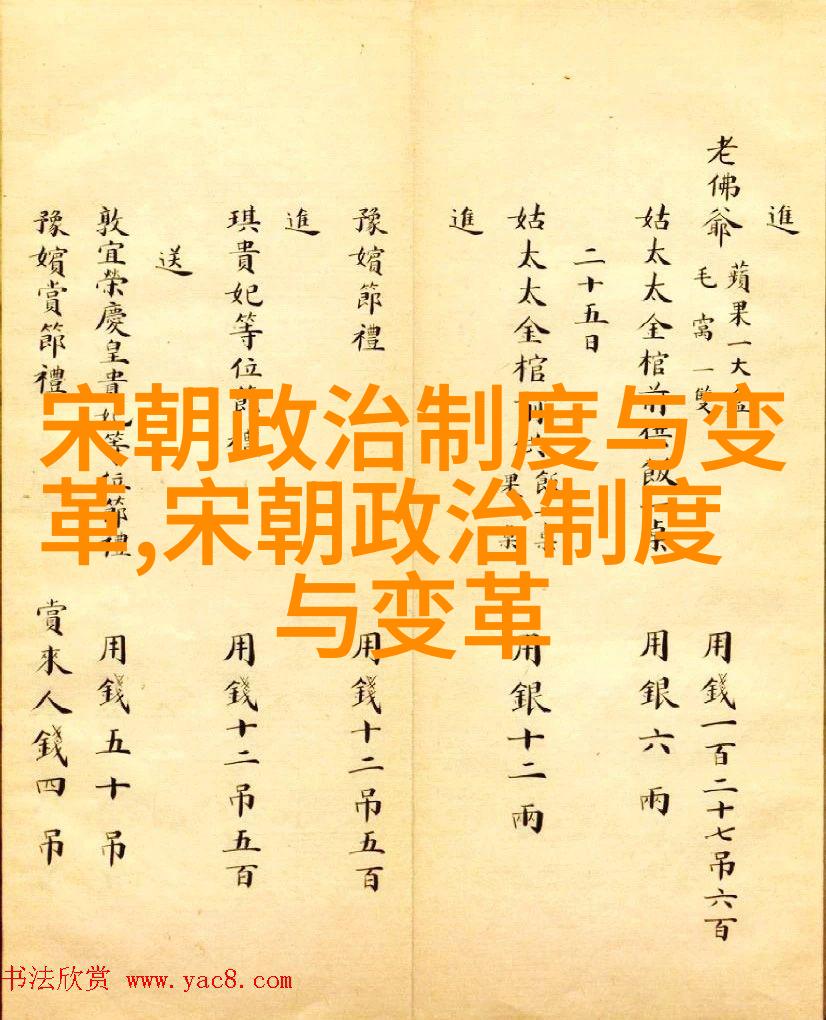 宋朝政治制度与变
革,宋朝政治制度
与变革
進
老佛爺 蘋果一大 毛窩一雙 用錢一百二十七吊六百
姑太太金棺前供飯一桌 用銀六兩
二十五日
姑太太金棺前供飯一桌 果 用銀十二兩
進
豫嬪節禮 用錢十二吊五百
進
琪貴妃等位節禮 用錢十二吊五百
送
敦宜榮慶皇貴妃等位節禮 用錢五十吊
豫嬪賞節禮 賞來人錢四吊
书法欣赏 www.yac8.com